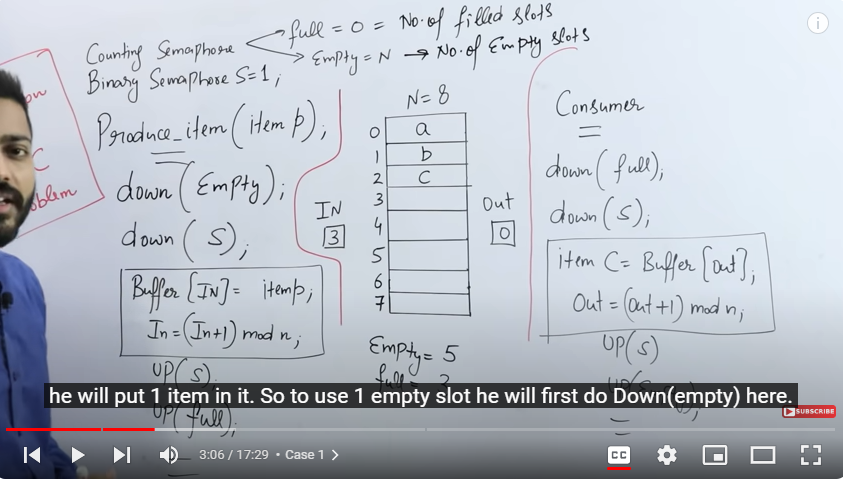 Counting Semaphore
full = 0 = No. of filled slots
Empty = N → No. of Empty slots
Binary Semaphore S=1;
Produce_item(item p);
down(Empty);
down(S);
Buffer[IN] = itemp;
In = (In+1) mod n;
UP(S);
UP(full);
oblem
C
IN
3
N=8
0 a
1 b
2 c
3
4
5
6
7
Empty = 5
full =
Out
0
Consumer
down(full);
down(S);
item C = Buffer[out];
Out = (out+1) mod n;
UP(S)
he will put 1 item in it. So to use 1 empty slot he will first do Down(empty) here.
SUBSCRIBE
3:06 / 17:29 • Case 1 >
CC